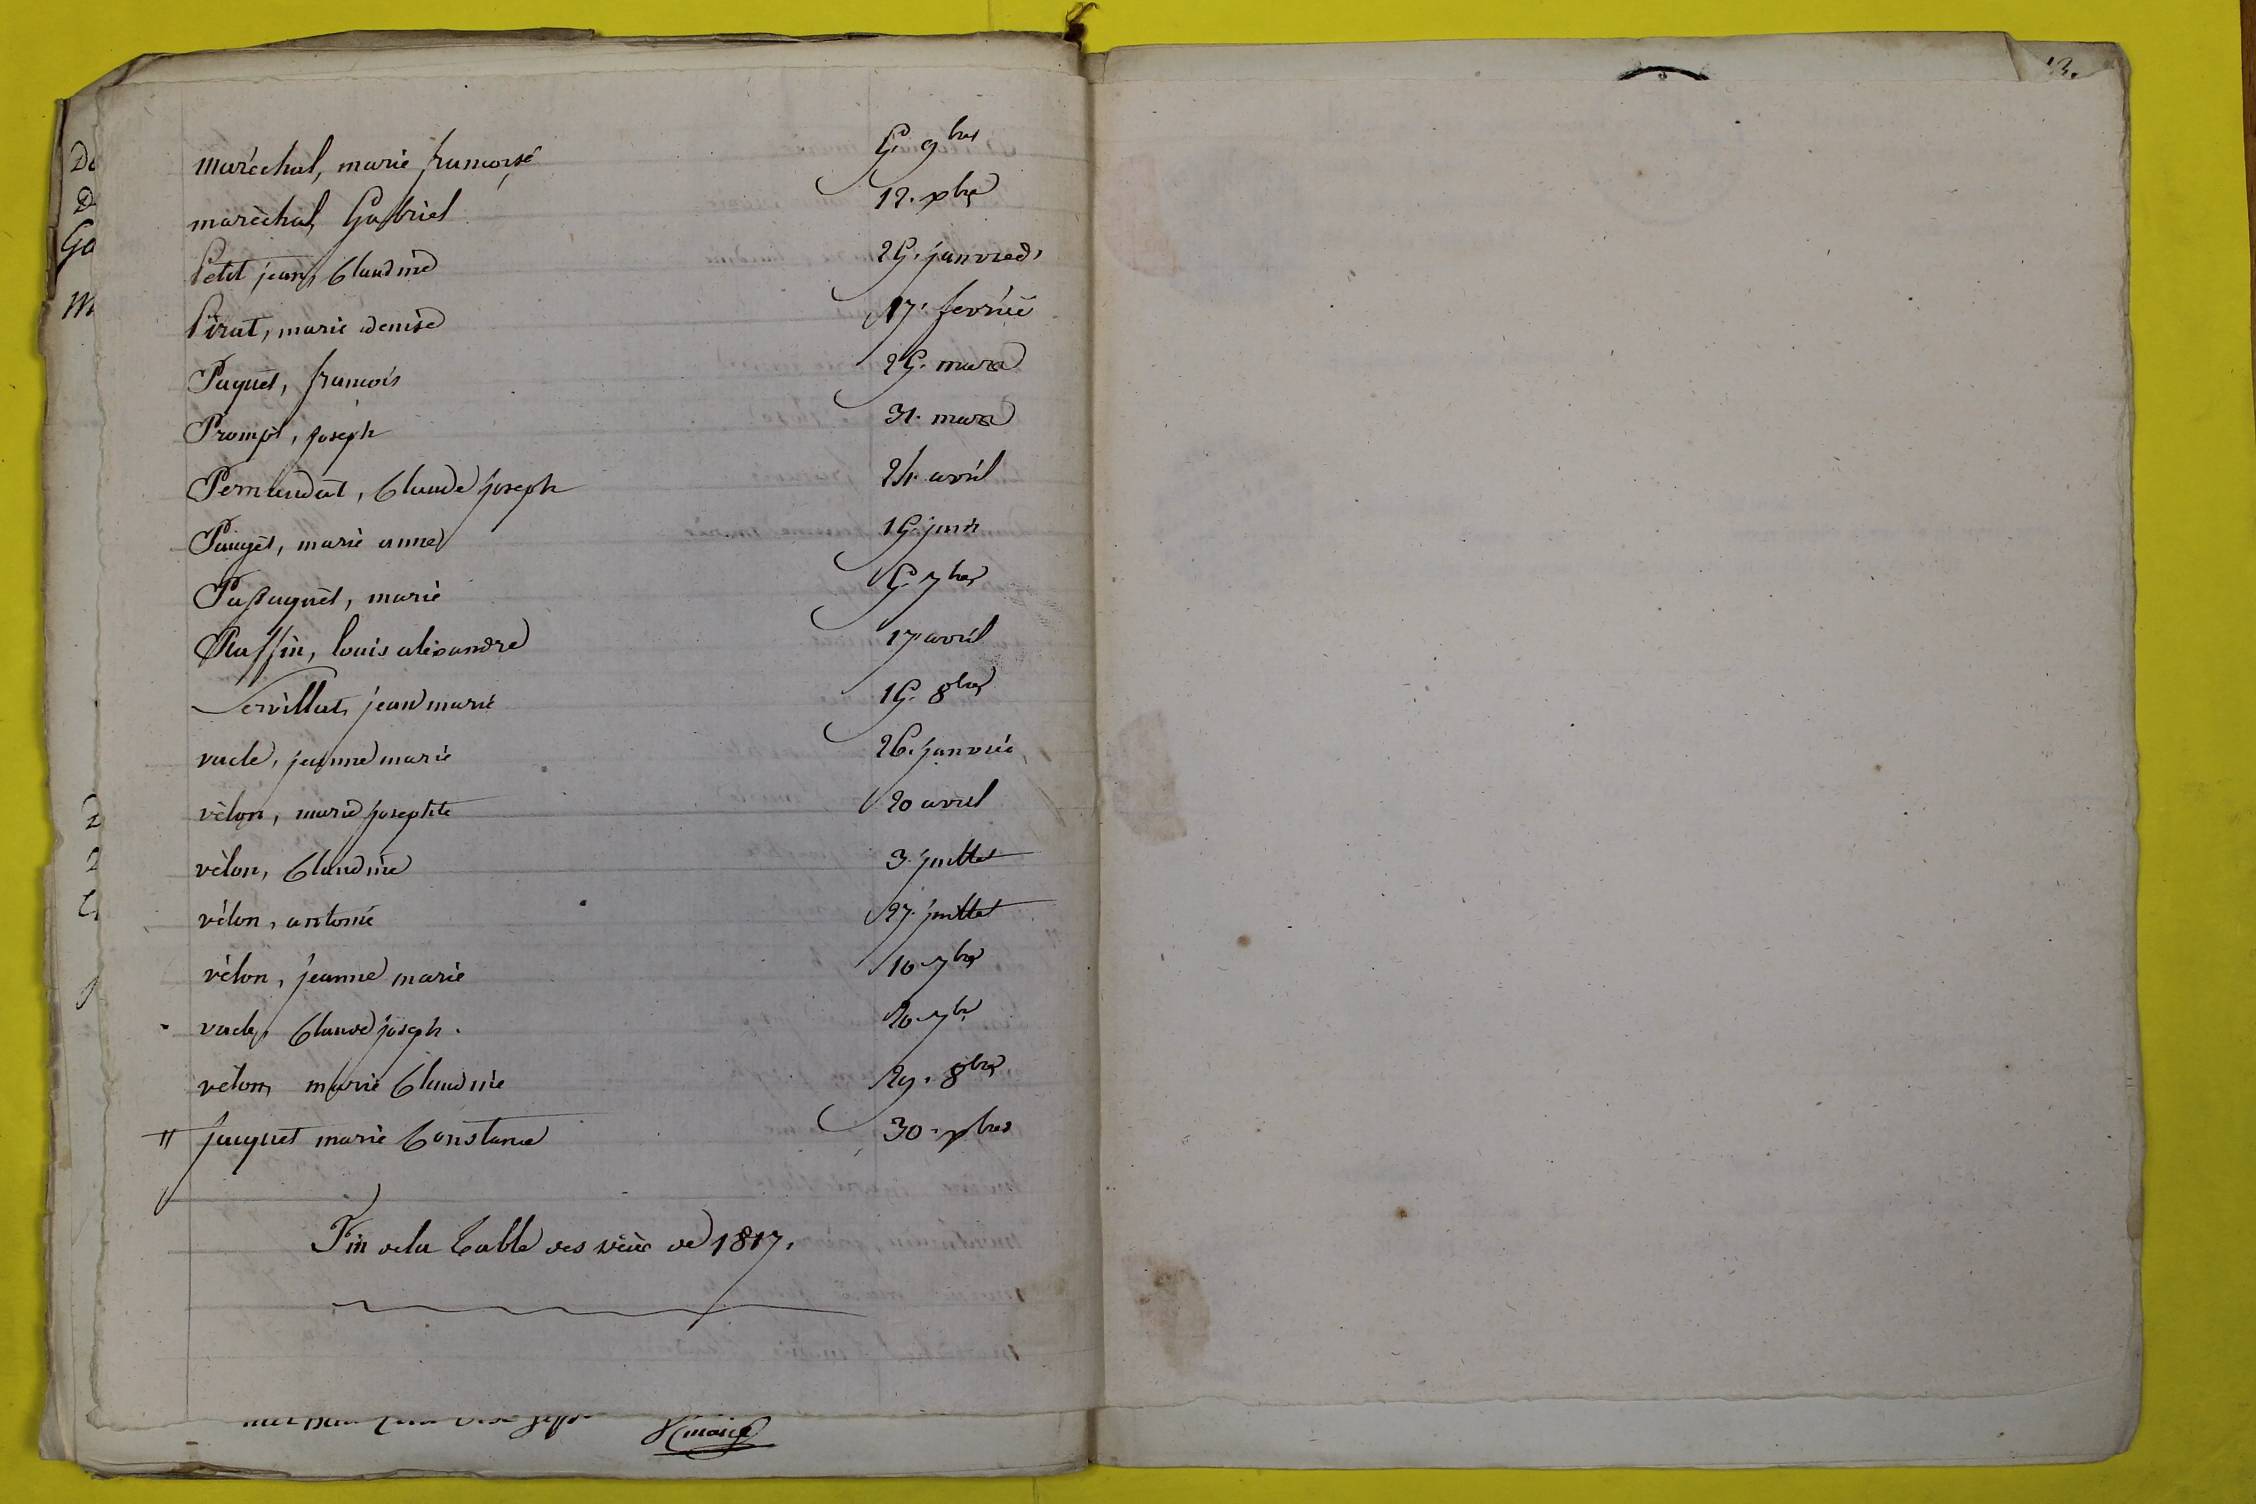 13.
maréchal, marie françoise 5. 9bre
maréchal, Gabriel 12. xbre
Petit jean, Claudine 25. janvier
Pirat, marie denise 17. fevrier
Paquet, francois 25. mars
Prompt, joseph 31. mars
Pernaudat, Claude joseph 24 avril
Puget, marie anne 15 juin
Pasaquet, marie 5. 7bre
Ruffin, louis alexandre 17 avril
Servillat, jean marie 15. 8bre
vacle, jeanne marie 26. janvier
vélon, marie josephte 20 avril
vélon, Claudine 3 juillet
vélon, antoine 27. juillet
vélon, jeanne marie 10 7bre
vacle, Claude joseph. 20 7bre
vélon, marie Claudine 29. 8bre
jacquet marie Constance 30. xbre
Fin de la table des de 1817.